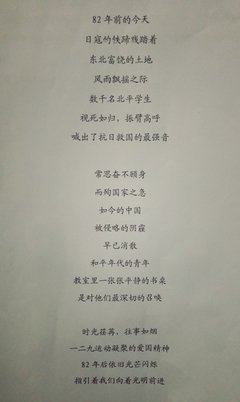 82年前的今天
日寇的铁蹄残踏着
东北富饶的土地
风雨飘摇之际
数千名北平学生
视死如归，振臂高呼
喊出了抗日救国的最强音
常思奋不顾身
而殉国家之急
如今的中国
被侵略的阴霾
早已消散
和平年代的青年
教室里一张张平静的书桌
是对他们最深切的召唤
时光荏苒，往事如烟
一二九运动凝聚的爱国精神
82年后依旧光芒闪烁
指引着我们向着光明前进